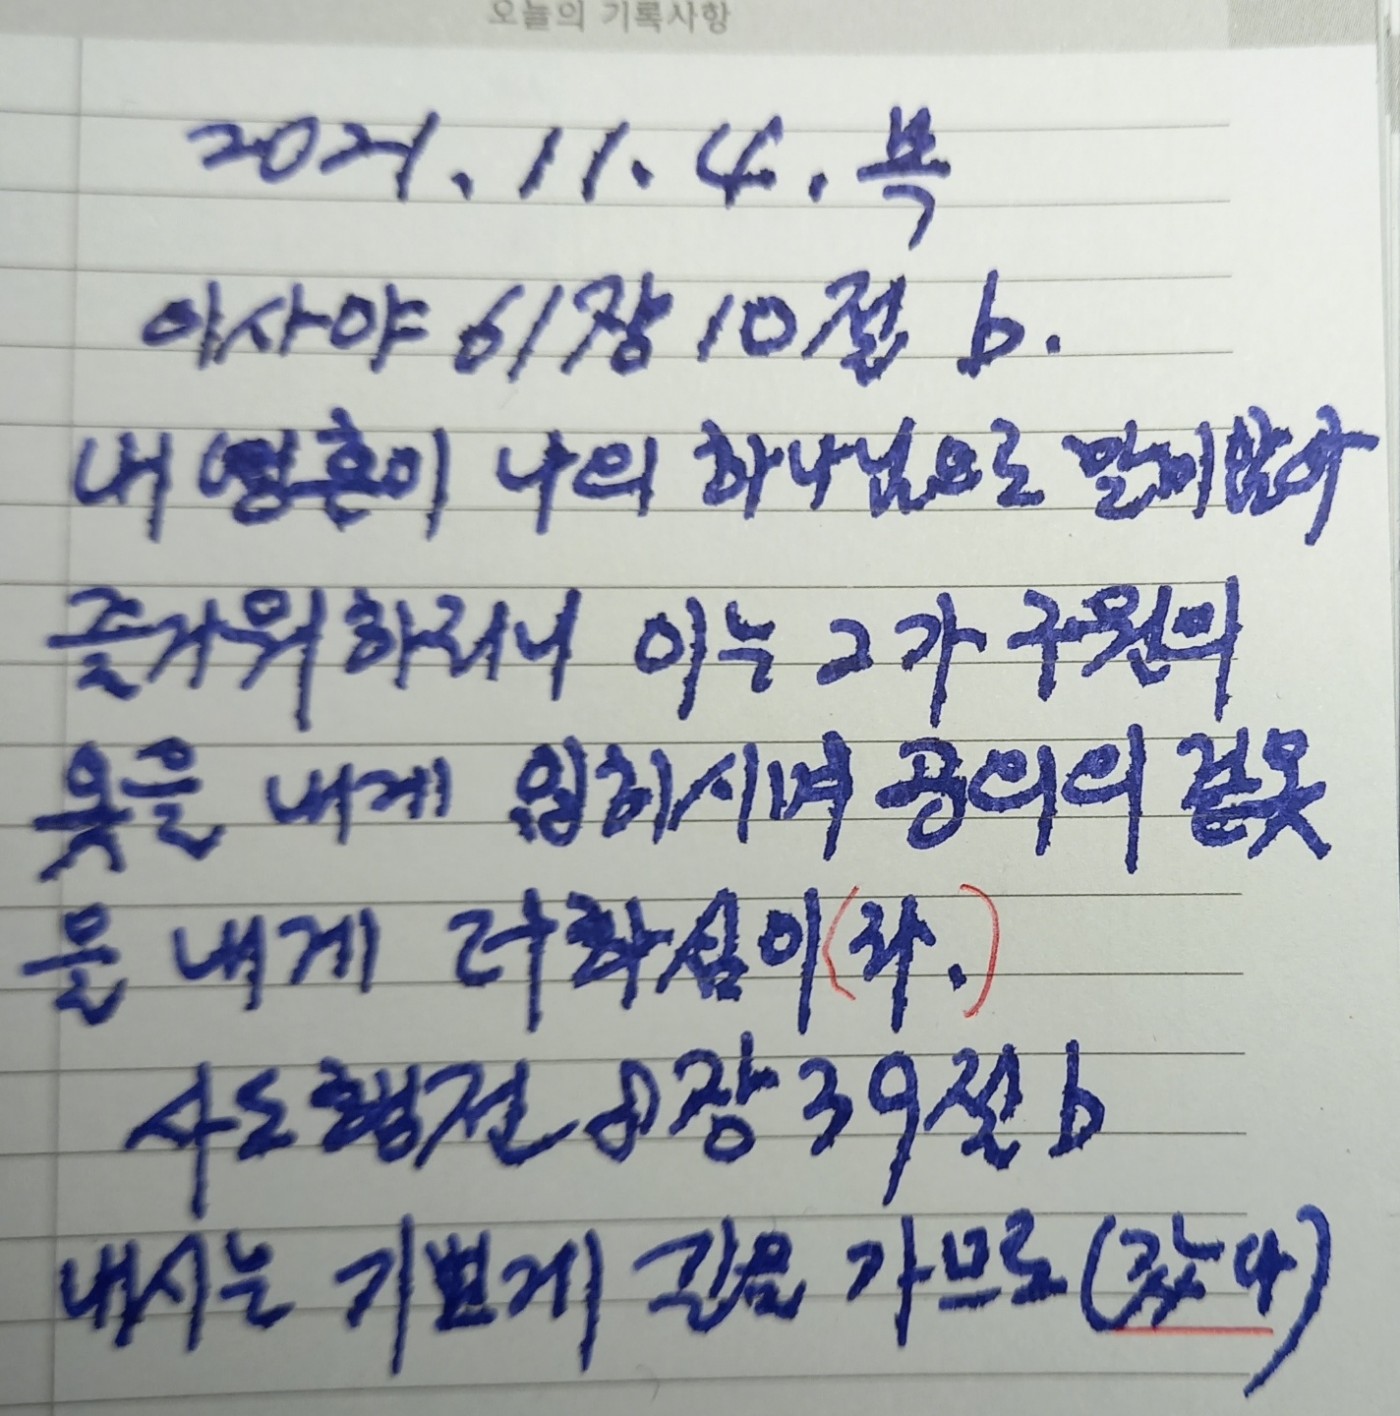 오늘의 기록사항
2021. 11. 4. 목
이사야 61장 10절 b.
내 영혼이 나의 하나님으로 말미암아
즐거워하리니 이는 그가 구원의
옷을 내게 입히시며 공의의 겉옷
을 내게 더하심이(라.)
사도행전 8장 39절 b
내시는 기쁘게 길을 가므로 (갔다)